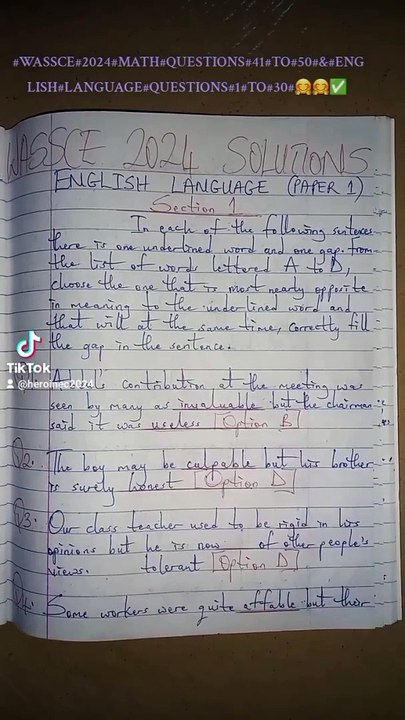 #WASSCE#2024#MATH#QUESTIONS#41#TO#50#&#ENG
LISH#LANGUAGE#QUESTIONS#1#TO#30#🤗🤗✅
WASSCE 2024 SOLUTIONS
ENGLISH LANGUAGE (PAPER 1)
Section 1
In each of the following sentences
there is one underlined word and one gap. From
the list of words lettered A to D,
choose the one that is most nearly opposite
in meaning to the underlined word and
that will at the same time, correctly fill
the gap in the sentence.
TikTok
@heroinec2024
contribution at the meeting was
seen by many as invaluable but the chairman
said it was useless Option B
2. The boy may be culpable but his brother
is surely honest Option D
3. Our class teacher used to be rigid in his
opinions but he is now of other people's
views. tolerant Option D
4. Some workers were quite affable but their